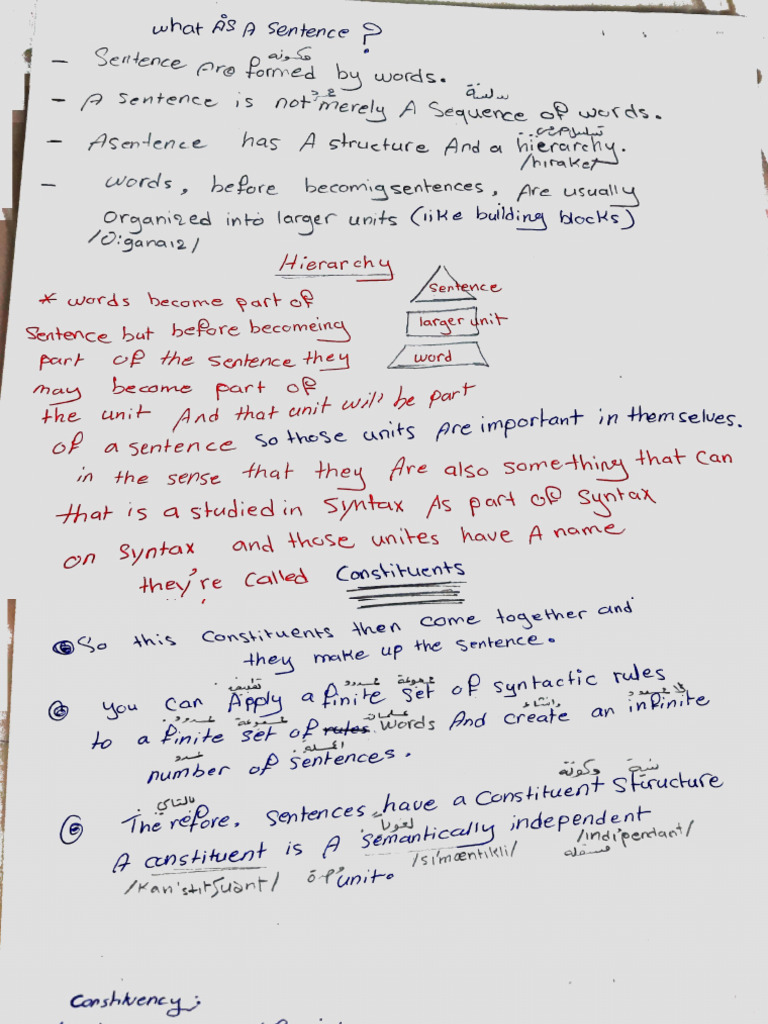 What is A Sentence?
مكونة
- Sentence Are formed by words.
مجرد سلسلة
- A sentence is not merely A Sequence of words.
- A sentence has A structure And a hierarchy.
/hiraket/
- words, before becomig sentences, Are usually
Organized into larger units (like building blocks)
/O:ganaiz/
Hierarchy
Sentence
larger unit
word
* words become part of
Sentence but before becomeing
part of the sentence they
may become part of
the unit And that unit will be part
of a sentence so those units Are important in themselves.
in the sense that they Are also something that can
that is a studied in Syntax As part of syntax
on syntax and those unites have A name
they're called Constituents
So this constituents then come together and
they make up the sentence.
تطبيق محدود مجموعة
you can Apply a finite set of syntactic rules
محدود مجموعة كلمات وانشاء
to a finite set of rules words And create an infinite
عدد
number of sentences.
بالتالي مكونة بنية
Therefore, sentences have a constituent structure
لغوياً
A constituent is A semantically independent
/kan'stitʃuant/ unit. /si'mæntikli/ /indi'pendant/
Constituency: